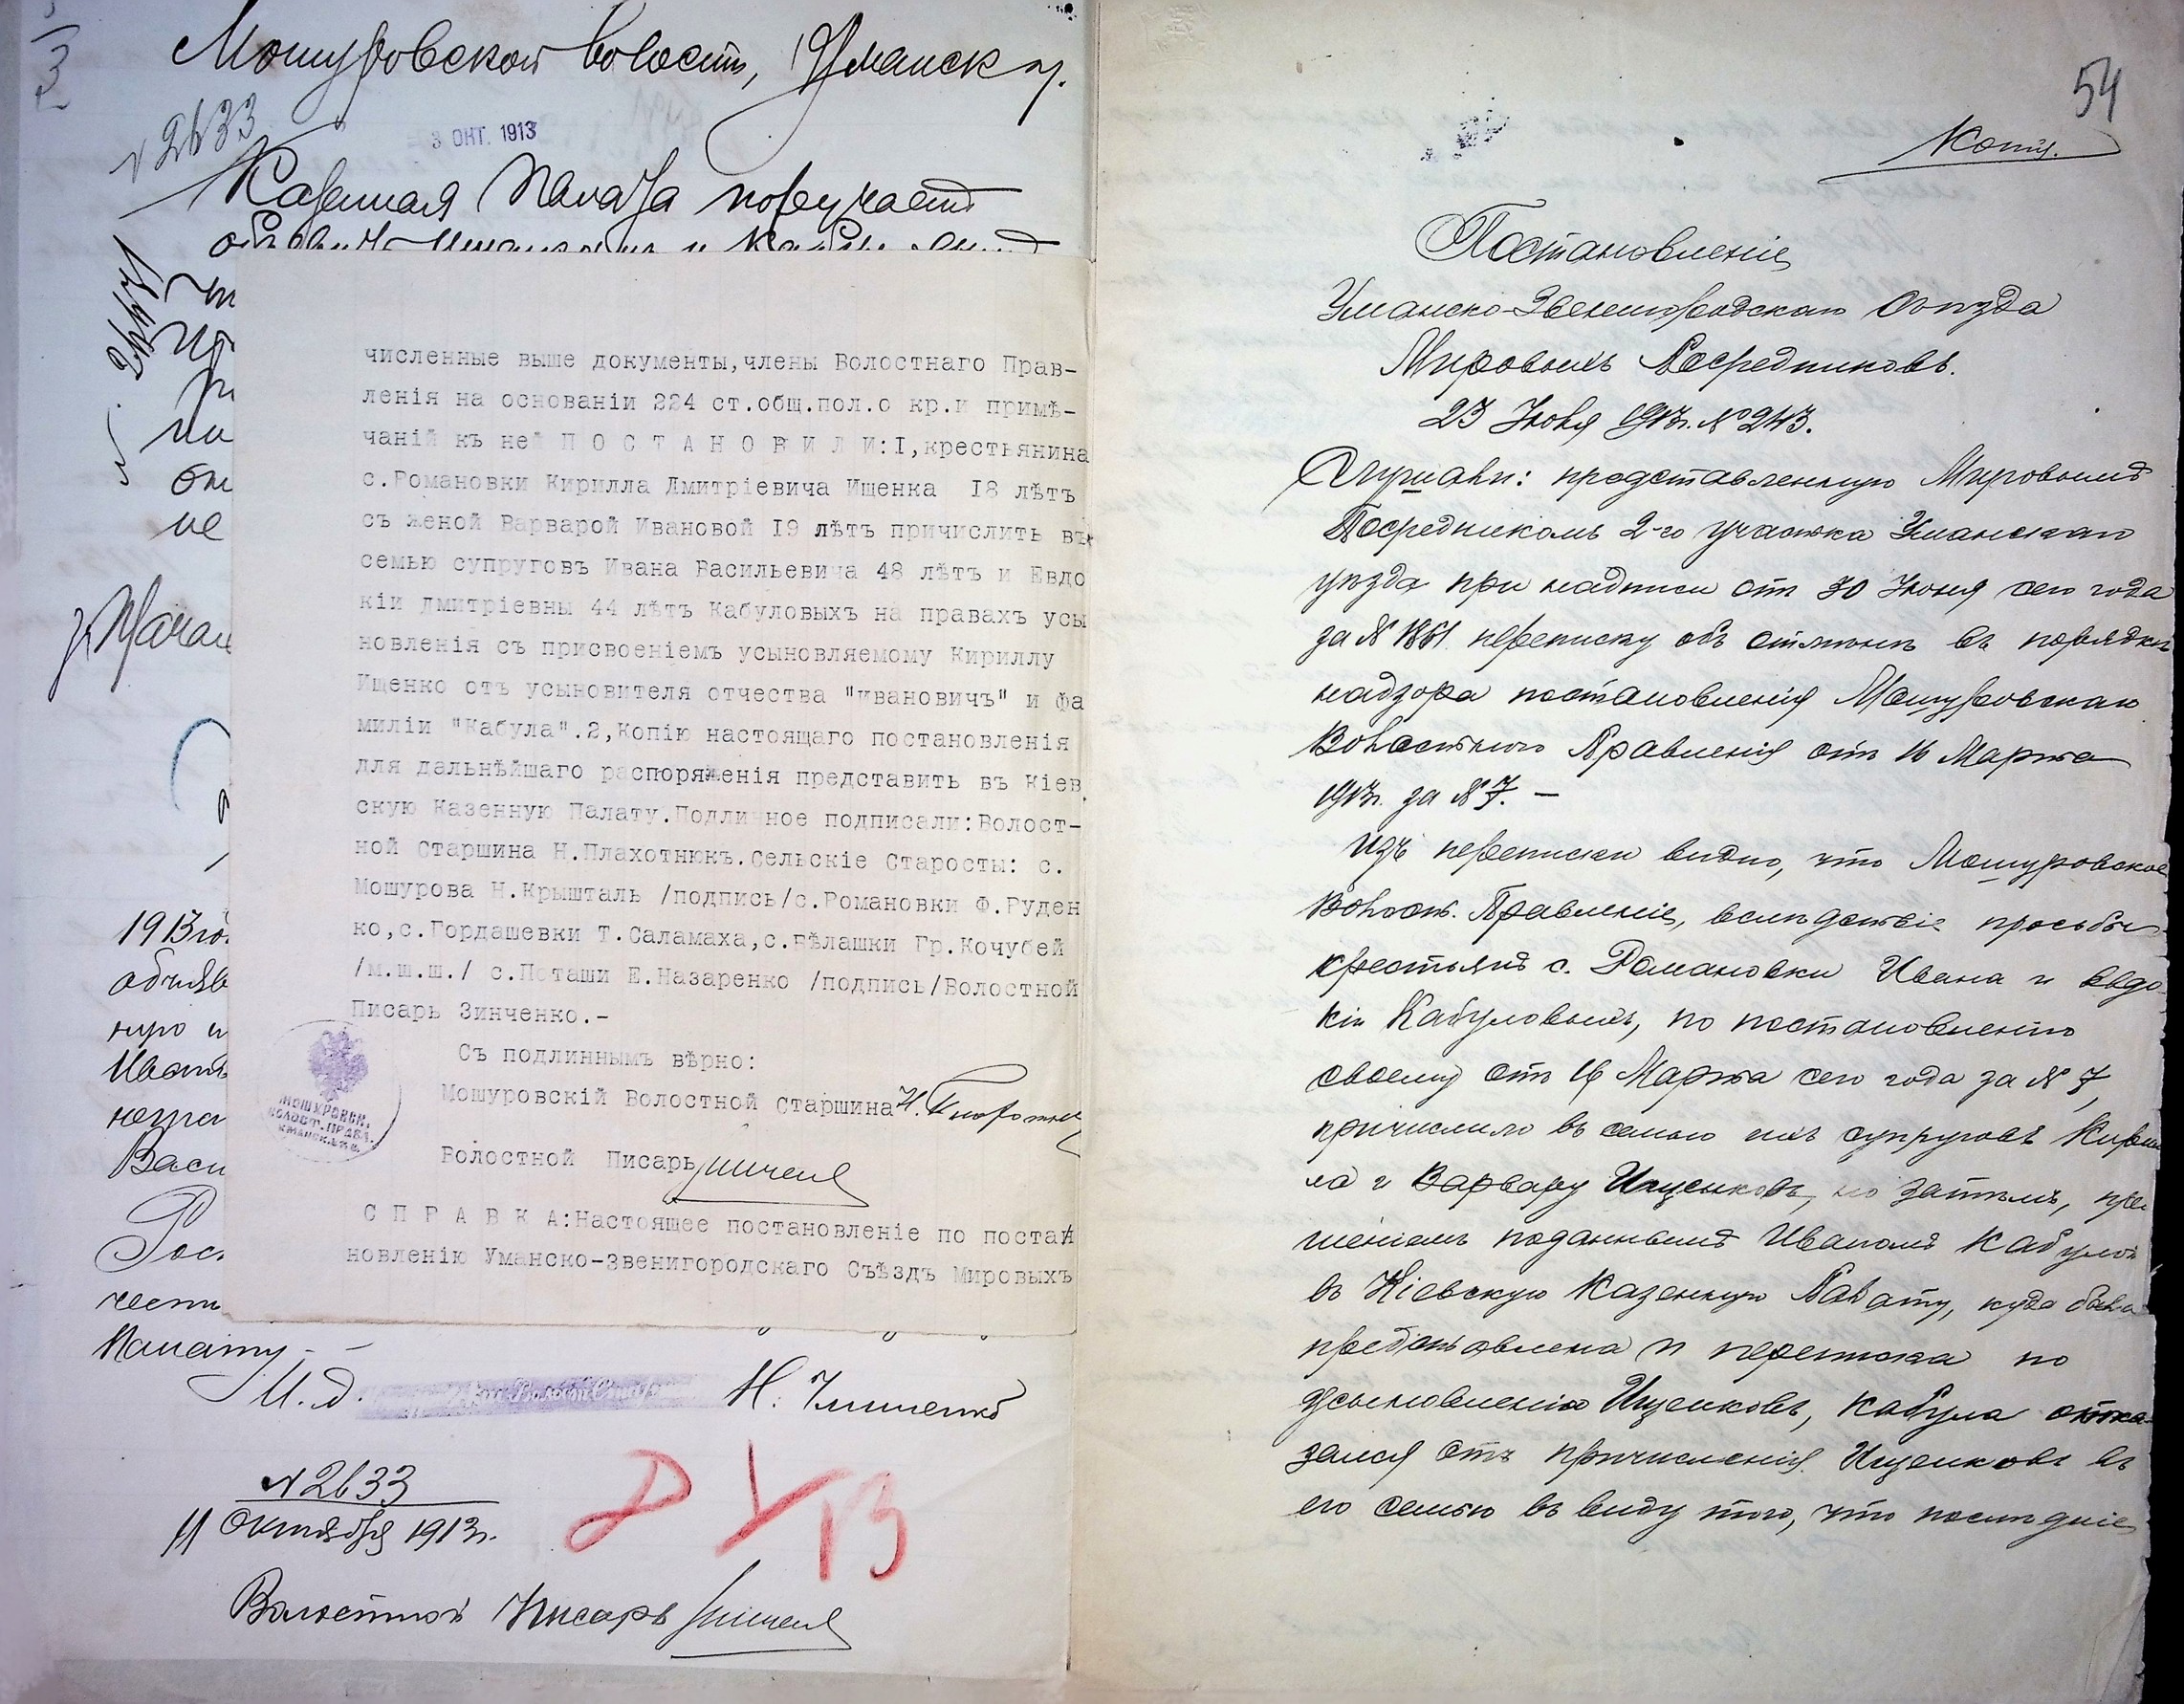 Мошуровской волости, Уманск у.
№2633
3 ОКТ. 1913
Казенная Палата поручаетъ
численные выше документы,члены Волостнаго Прав-
ленія на основаніи 224 ст.общ.пол.о кр.и примѣ-
чаній къ ней П О С Т А Н О В И Л И:I,крестьянина
с.Романовки Кирилла Дмитріевича Ищенка I8 лѣтъ
съ женой Варварой Ивановой I9 лѣтъ причислить въ
семью супруговъ Ивана Васильевича 48 лѣтъ и Евдо
кіи Дмитріевны 44 лѣтъ Кабуловыхъ на правахъ усы
новленія съ присвоеніемъ усыновляемому Кириллу
Ищенко отъ усыновителя отчества "Ивановичъ" и фа
миліи "Кабула".2,Копію настоящаго постановленія
для дальнѣйшаго распоряженія представить въ Кіев
скую Казенную Палату.Подлинное подписали:Волост-
ной Старшина Н.Плахотнюкъ.Сельскіе Старосты: с.
Мошурова Н.Крышталь /подпись/с.Романовки Ф.Руден
ко,с.Гордашевки Т.Саламаха,с.Бѣлашки Гр.Кочубей
/м.ш.ш./ с.Поташи Е.Назаренко /подпись/Волостной
Писарь Зинченко.-
Съ подлиннымъ вѣрно:
Мошуровскій Волостной Старшина
Волостной Писарь
С П Р А В К А:Настоящее постановленіе по поста
новленію Уманско-Звенигородскаго Съѣздъ Мировыхъ
МОШУРОВСК.
ВОЛОСТ. ПРАВЛ.
УМАНСК. У.
1913 го
объяв
Иван
Васи
Рос
Палату.
И.д.
№2633
11 Октября 1913г.
Волостной Писарь
54
Копія.
Постановленіе
Уманско-Звенигородскаго Съѣзда
Мировыхъ Посредниковъ.
23 Іюля 1913г. № 243.
Слушали: представленную Мировымъ
Посредникомъ 2-го участка Уманскаго
уѣзда при надписи отъ 30 Іюня сего года
за № 1861 переписку объ отмѣнѣ въ порядкѣ
надзора постановленія Мошуровскаго
Волостного Правленія отъ 16 Марта
1913г. за № 7. —
Изъ переписки видно, что Мошуровское
Волост. Правленіе, вслѣдствіе просьбы
крестьянъ с. Романовки Ивана и Евдо
кіи Кабуловыхъ, по постановленію
своему отъ 16 Марта сего года за № 7,
причислило въ семью ихъ супруговъ Кирил
ла и Варвару Ищенковъ, но затѣмъ, про
шеніемъ поданнымъ Иваномъ Кабулой
въ Кіевскую Казенную Палату, куда была
представлена и переписка по
усыновленію Ищенковъ, Кабула отка
зался отъ причисленія Ищенковъ въ
его семью въ виду того, что послѣдніе